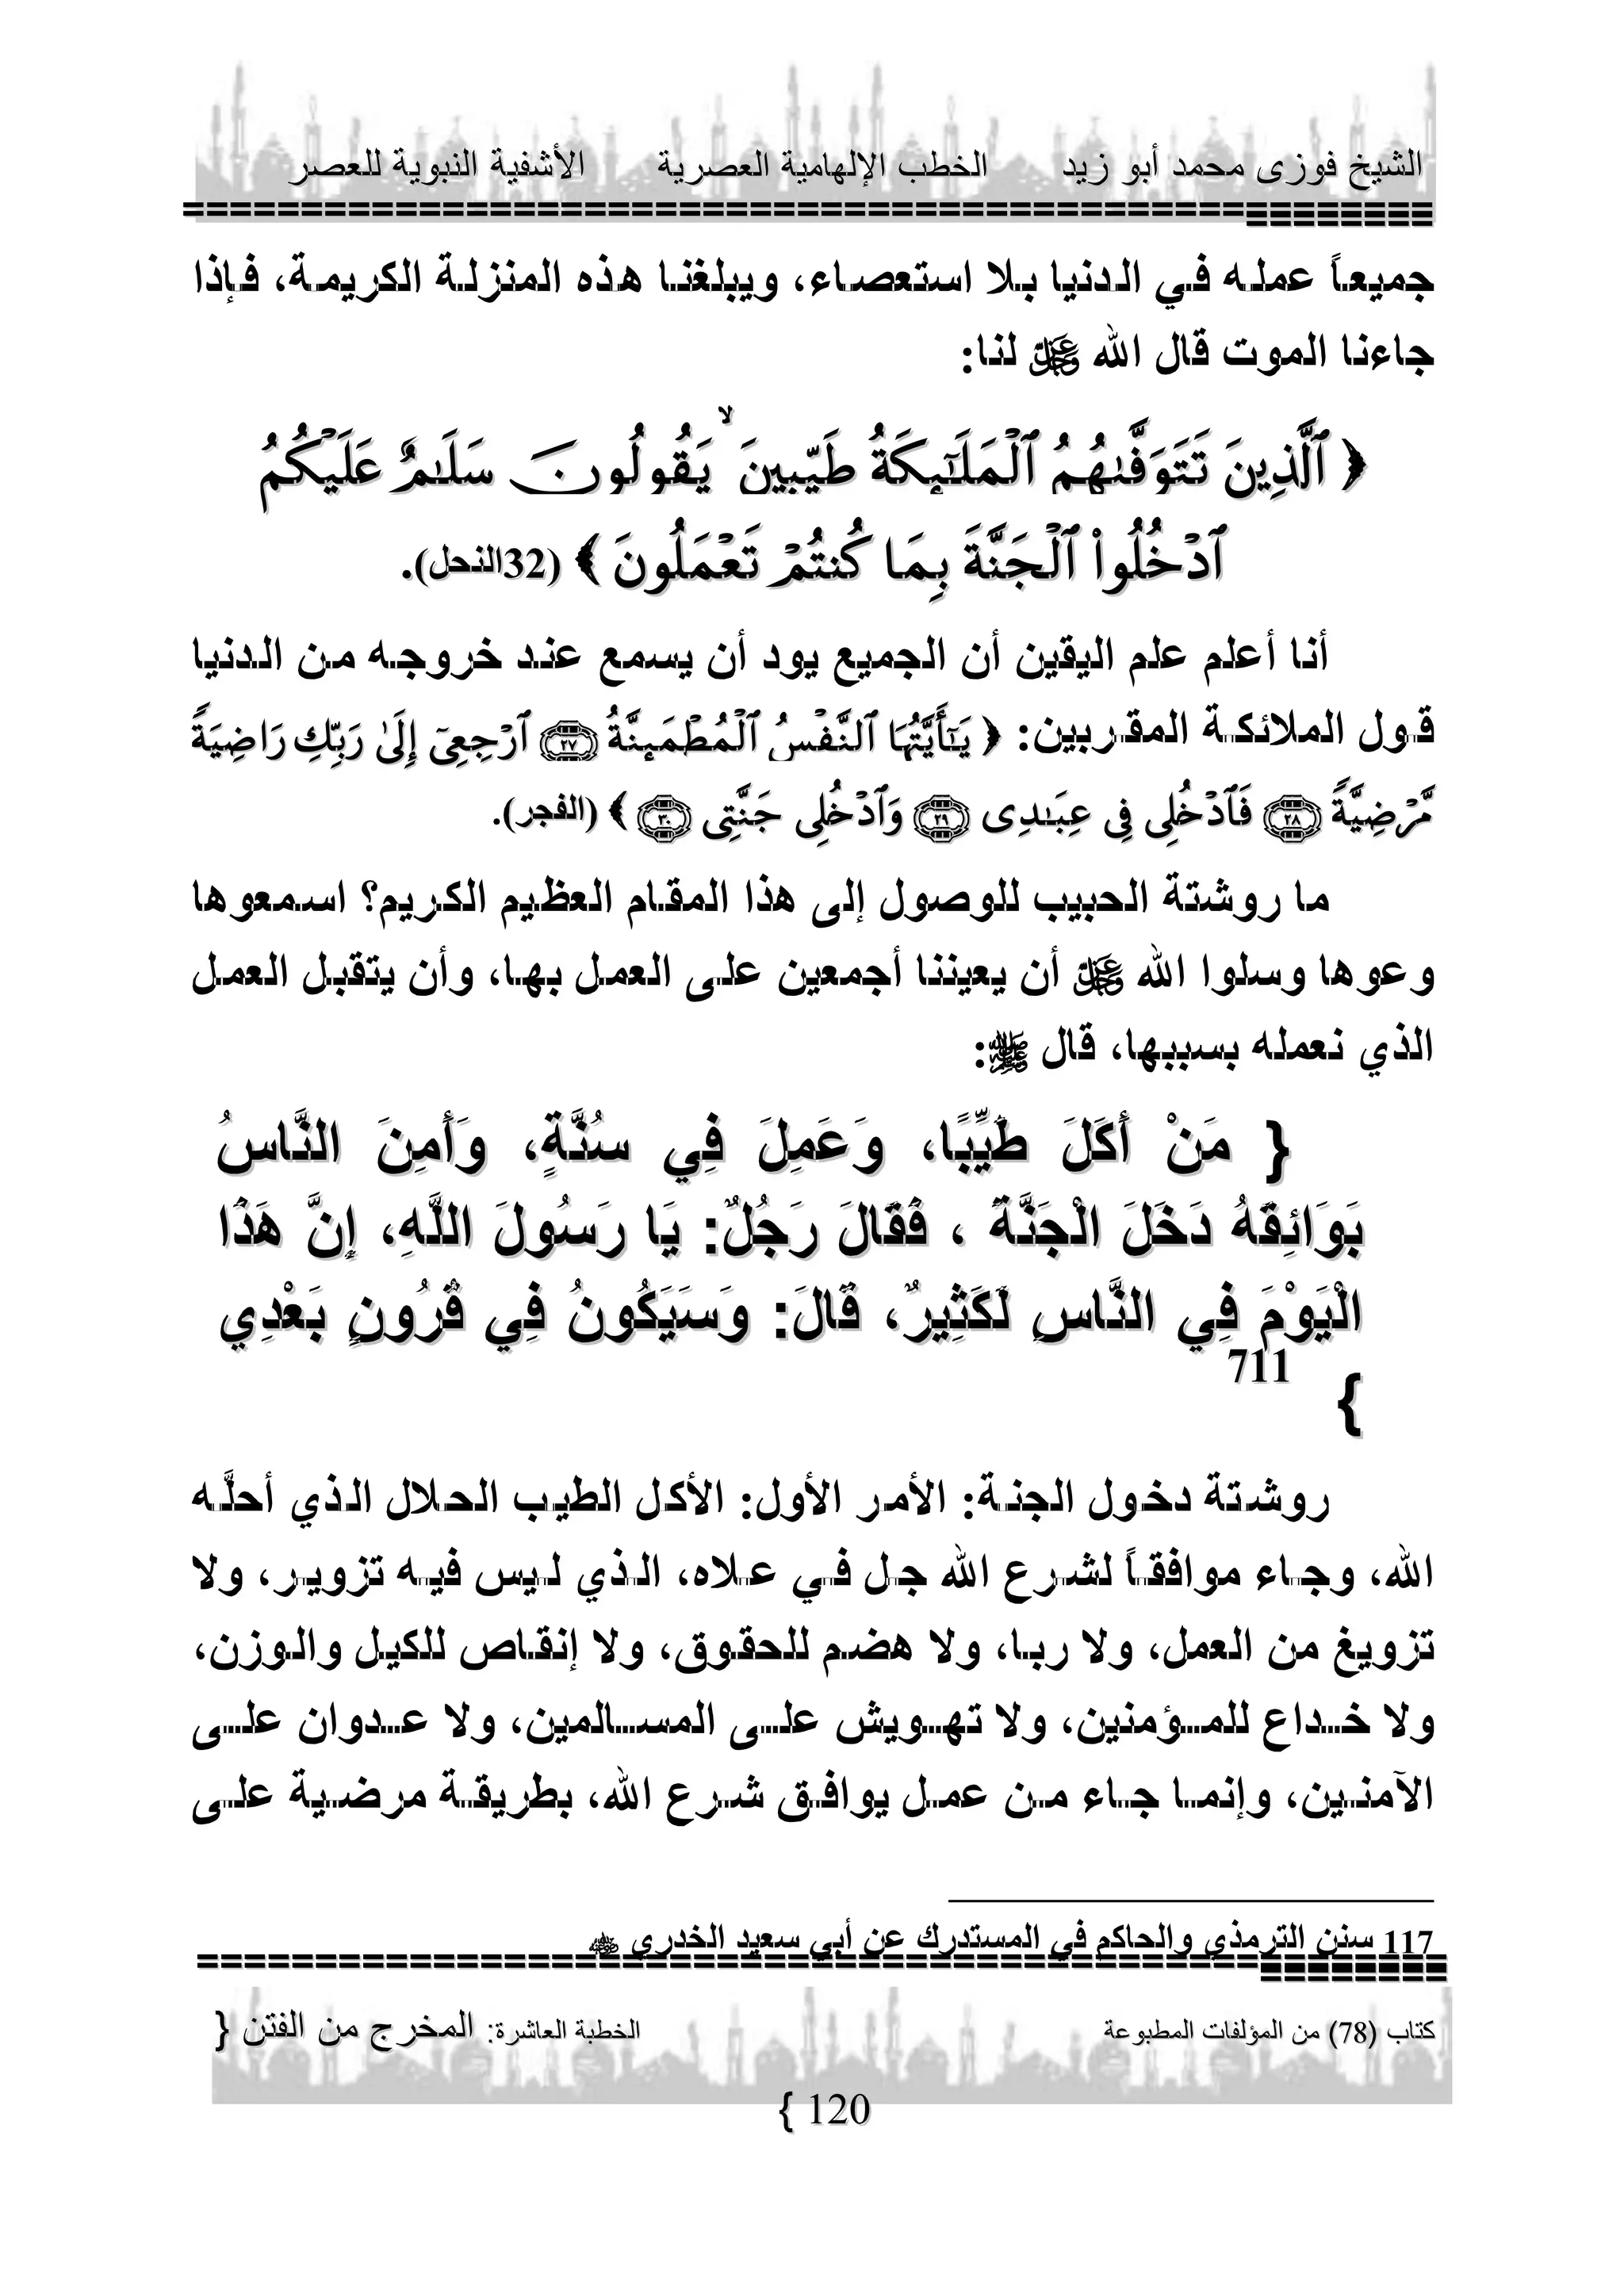 الشيخ فوزى محمد أبو زيد الخطب الإلهامية العصرية الأشفية النبوية للعصر
جميعاً عمله في الدنيا بلا استعصاء، ويبلغنا هذه المنزلة الكريمة، فإذا
جاءنا الموت قال الله عز وجل لنا:
﴿ ٱلَّذِينَ تَتَوَفَّىٰهُمُ ٱلْمَلَٰٓئِكَةُ طَيِّبِينَ ۙ يَقُولُونَ سَلَٰمٌ عَلَيْكُمُ
ٱدْخُلُوا۟ ٱلْجَنَّةَ بِمَا كُنتُمْ تَعْمَلُونَ ﴾ (32النحل).
أنا أعلم علم اليقين أن الجميع يود أن يسمع عند خروجه من الدنيا
قول الملائكة المقربين: ﴿ يَٰٓأَيَّتُهَا ٱلنَّفْسُ ٱلْمُطْمَئِنَّةُ ۝٢٧ ٱرْجِعِىٓ إِلَىٰ رَبِّكِ رَاضِيَةً
مَّرْضِيَّةً ۝٢٨ فَٱدْخُلِى فِى عِبَٰدِى ۝٢٩ وَٱدْخُلِى جَنَّتِى ۝٣٠ ﴾ (الفجر).
ما روشتة الحبيب للوصول إلى هذا المقام العظيم الكريم؟ اسمعوها
وعوها وسلوا الله عز وجل أن يعيننا أجمعين على العمل بها، وأن يتقبل العمل
الذي نعمله بسببها، قال ﷺ:
{ مَنْ أَكَلَ طَيِّبًا، وَعَمِلَ فِي سُنَّةٍ، وَأَمِنَ النَّاسُ
بَوَائِقَهُ دَخَلَ الْجَنَّةَ ، فَقَالَ رَجُلٌ: يَا رَسُولَ اللَّهِ، إِنَّ هَذَا
الْيَوْمَ فِي النَّاسِ لَكَثِيرٌ، قَالَ: وَسَيَكُونُ فِي قُرُونٍ بَعْدِي
} 711
روشتة دخول الجنة: الأمر الأول: الأكل الطيب الحلال الذي أحلَّه
الله، وجاء موافقاً لشرع الله جل في علاه، الذي ليس فيه تزوير، ولا
تزويغ من العمل، ولا ربا، ولا هضم للحقوق، ولا إنقاص للكيل والوزن،
ولا خداع للمؤمنين، ولا تهويش على المسالمين، ولا عدوان على
الآمنين، وإنما جاء من عمل يوافق شرع الله، بطريقة مرضية على
117 سنن الترمذي والحاكم في المستدرك عن أبي سعيد الخدري رضي الله عنه
كتاب (78) من المؤلفات المطبوعة الخطبة العاشرة: المخرج من الفتن {
120 }